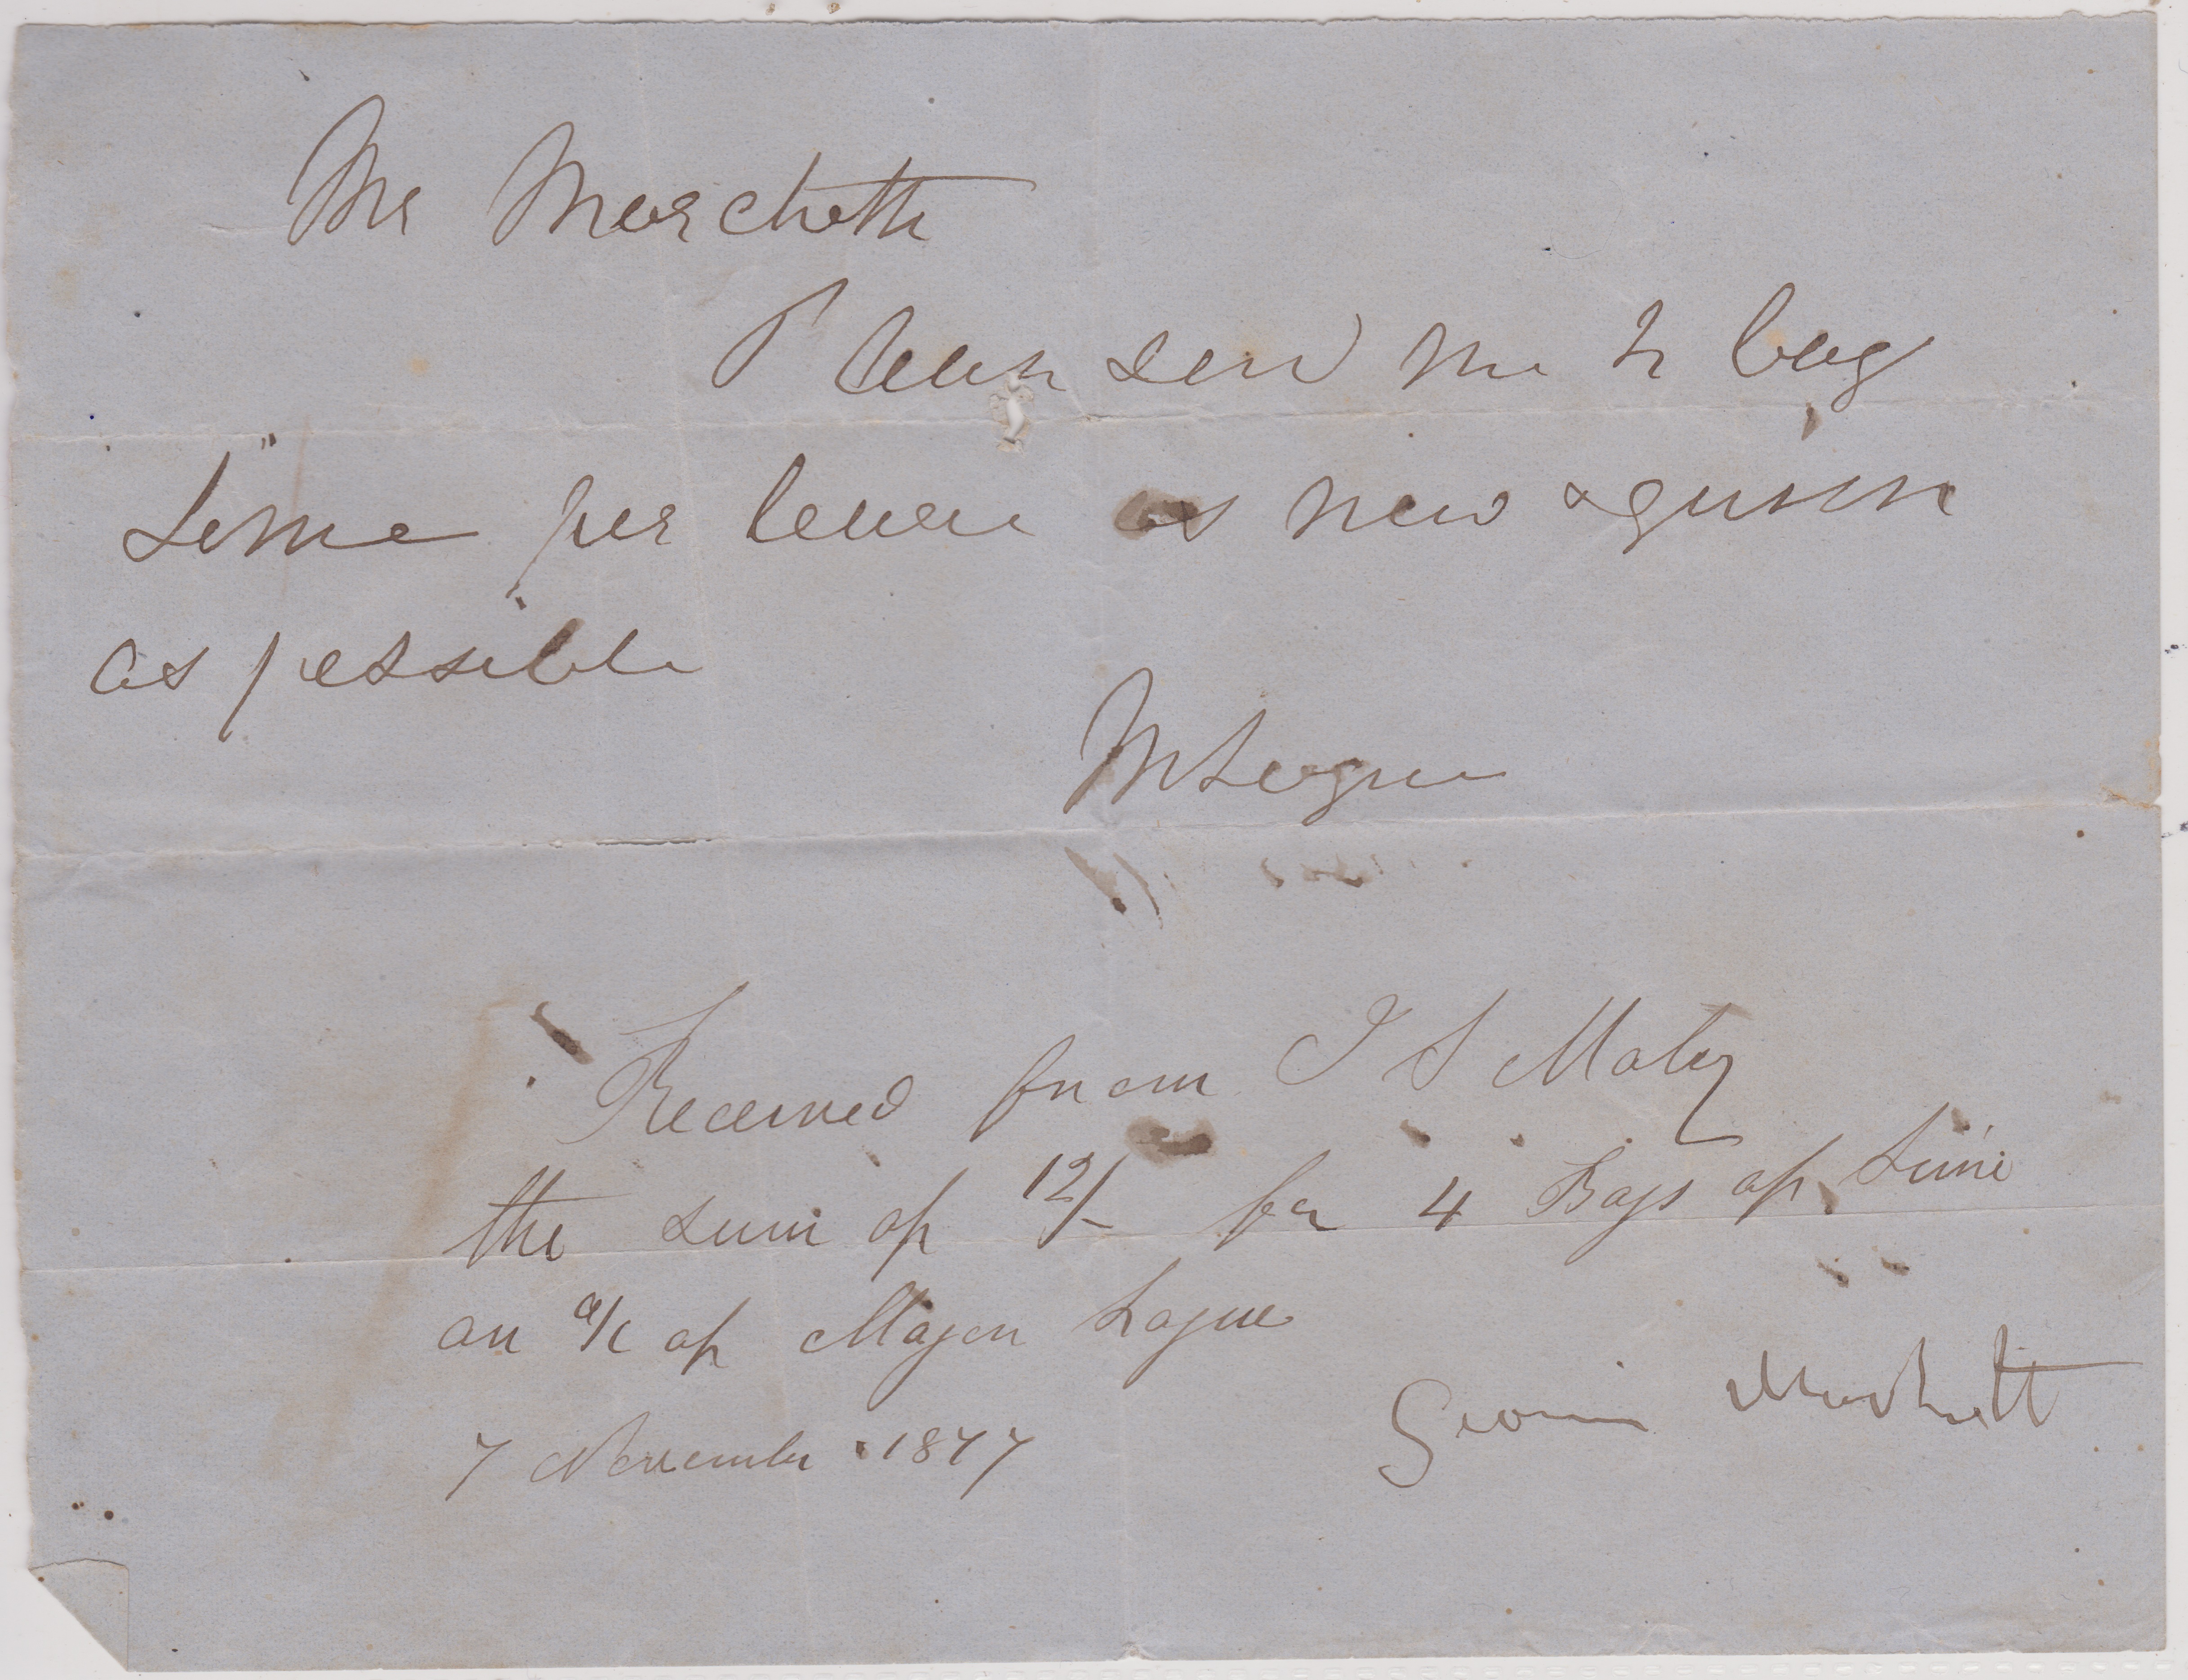 Mr Marchett
Please send me 4 bag
Lime per bearer as new &
as possible
M Logue
Received from I S Maley
the sum of 12/- for 4 Bags of Lime
on a/c of Major Logue
7 November 1877
George Marchett